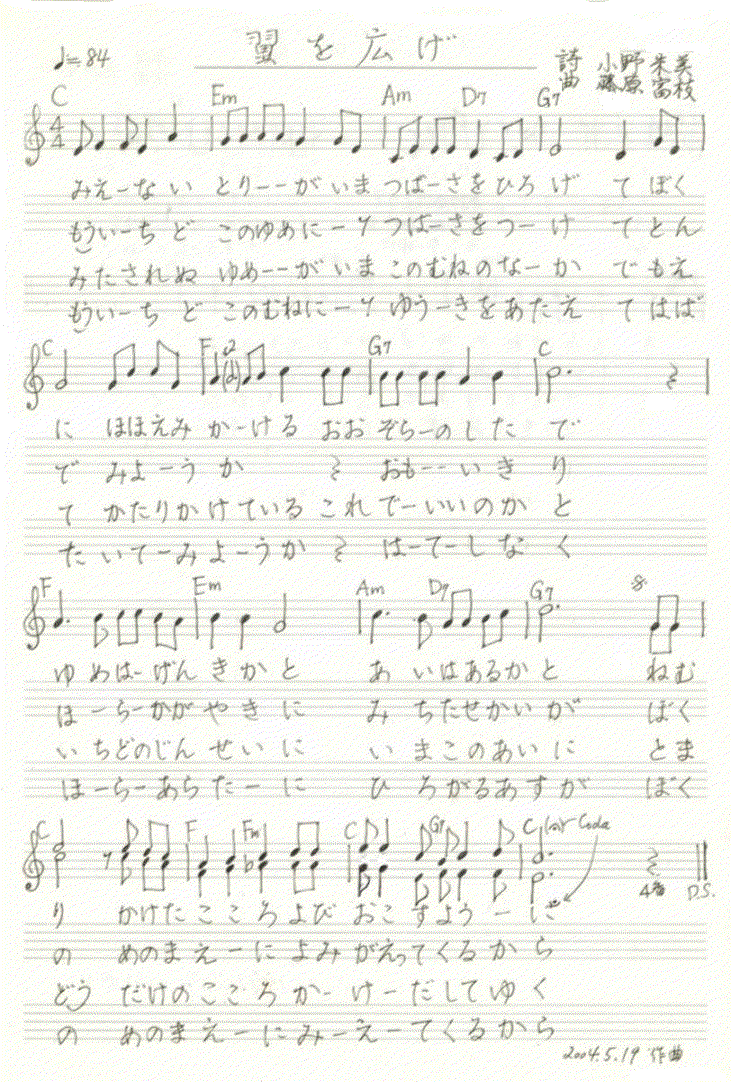 翼を広げ
♩=84
詩 小野朱美
曲 藤原富枝
C Em Am D7 G7
みえーない とりーーがいま つばーさをひろげ てぼく
もういーちど このゆめにー つばーさをつーけ てとん
みたされぬ ゆめーーがいま このむねのなーか でもえ
もういーちど このむねにー ゆうーきをあたえ てはば
C F G7 C
に ほほえみ かーける おおぞらーのした で
で みよーうか おもーーいき り
て かたりかけている これでーいいのか と
たいてーみよーうか はーてーしな く
F Em Am D7 G7
ゆめはーげんきかと あいはあるかと ねむ
ほーらーかがやきに みちたせかいが ぼく
いちどのじんせいに いまこのあいに とま
ほーらーあらたーに ひろがるあすが ぼく
C F Fm C G7 C Coda
り かけたこころよび おこすようーに
の めのまえーによみ がえってくるから
どう だけのこころかー けーだしてゆく
の めのまえーにみーえーてくるから
4番 D.S.
2004.5.19 作曲